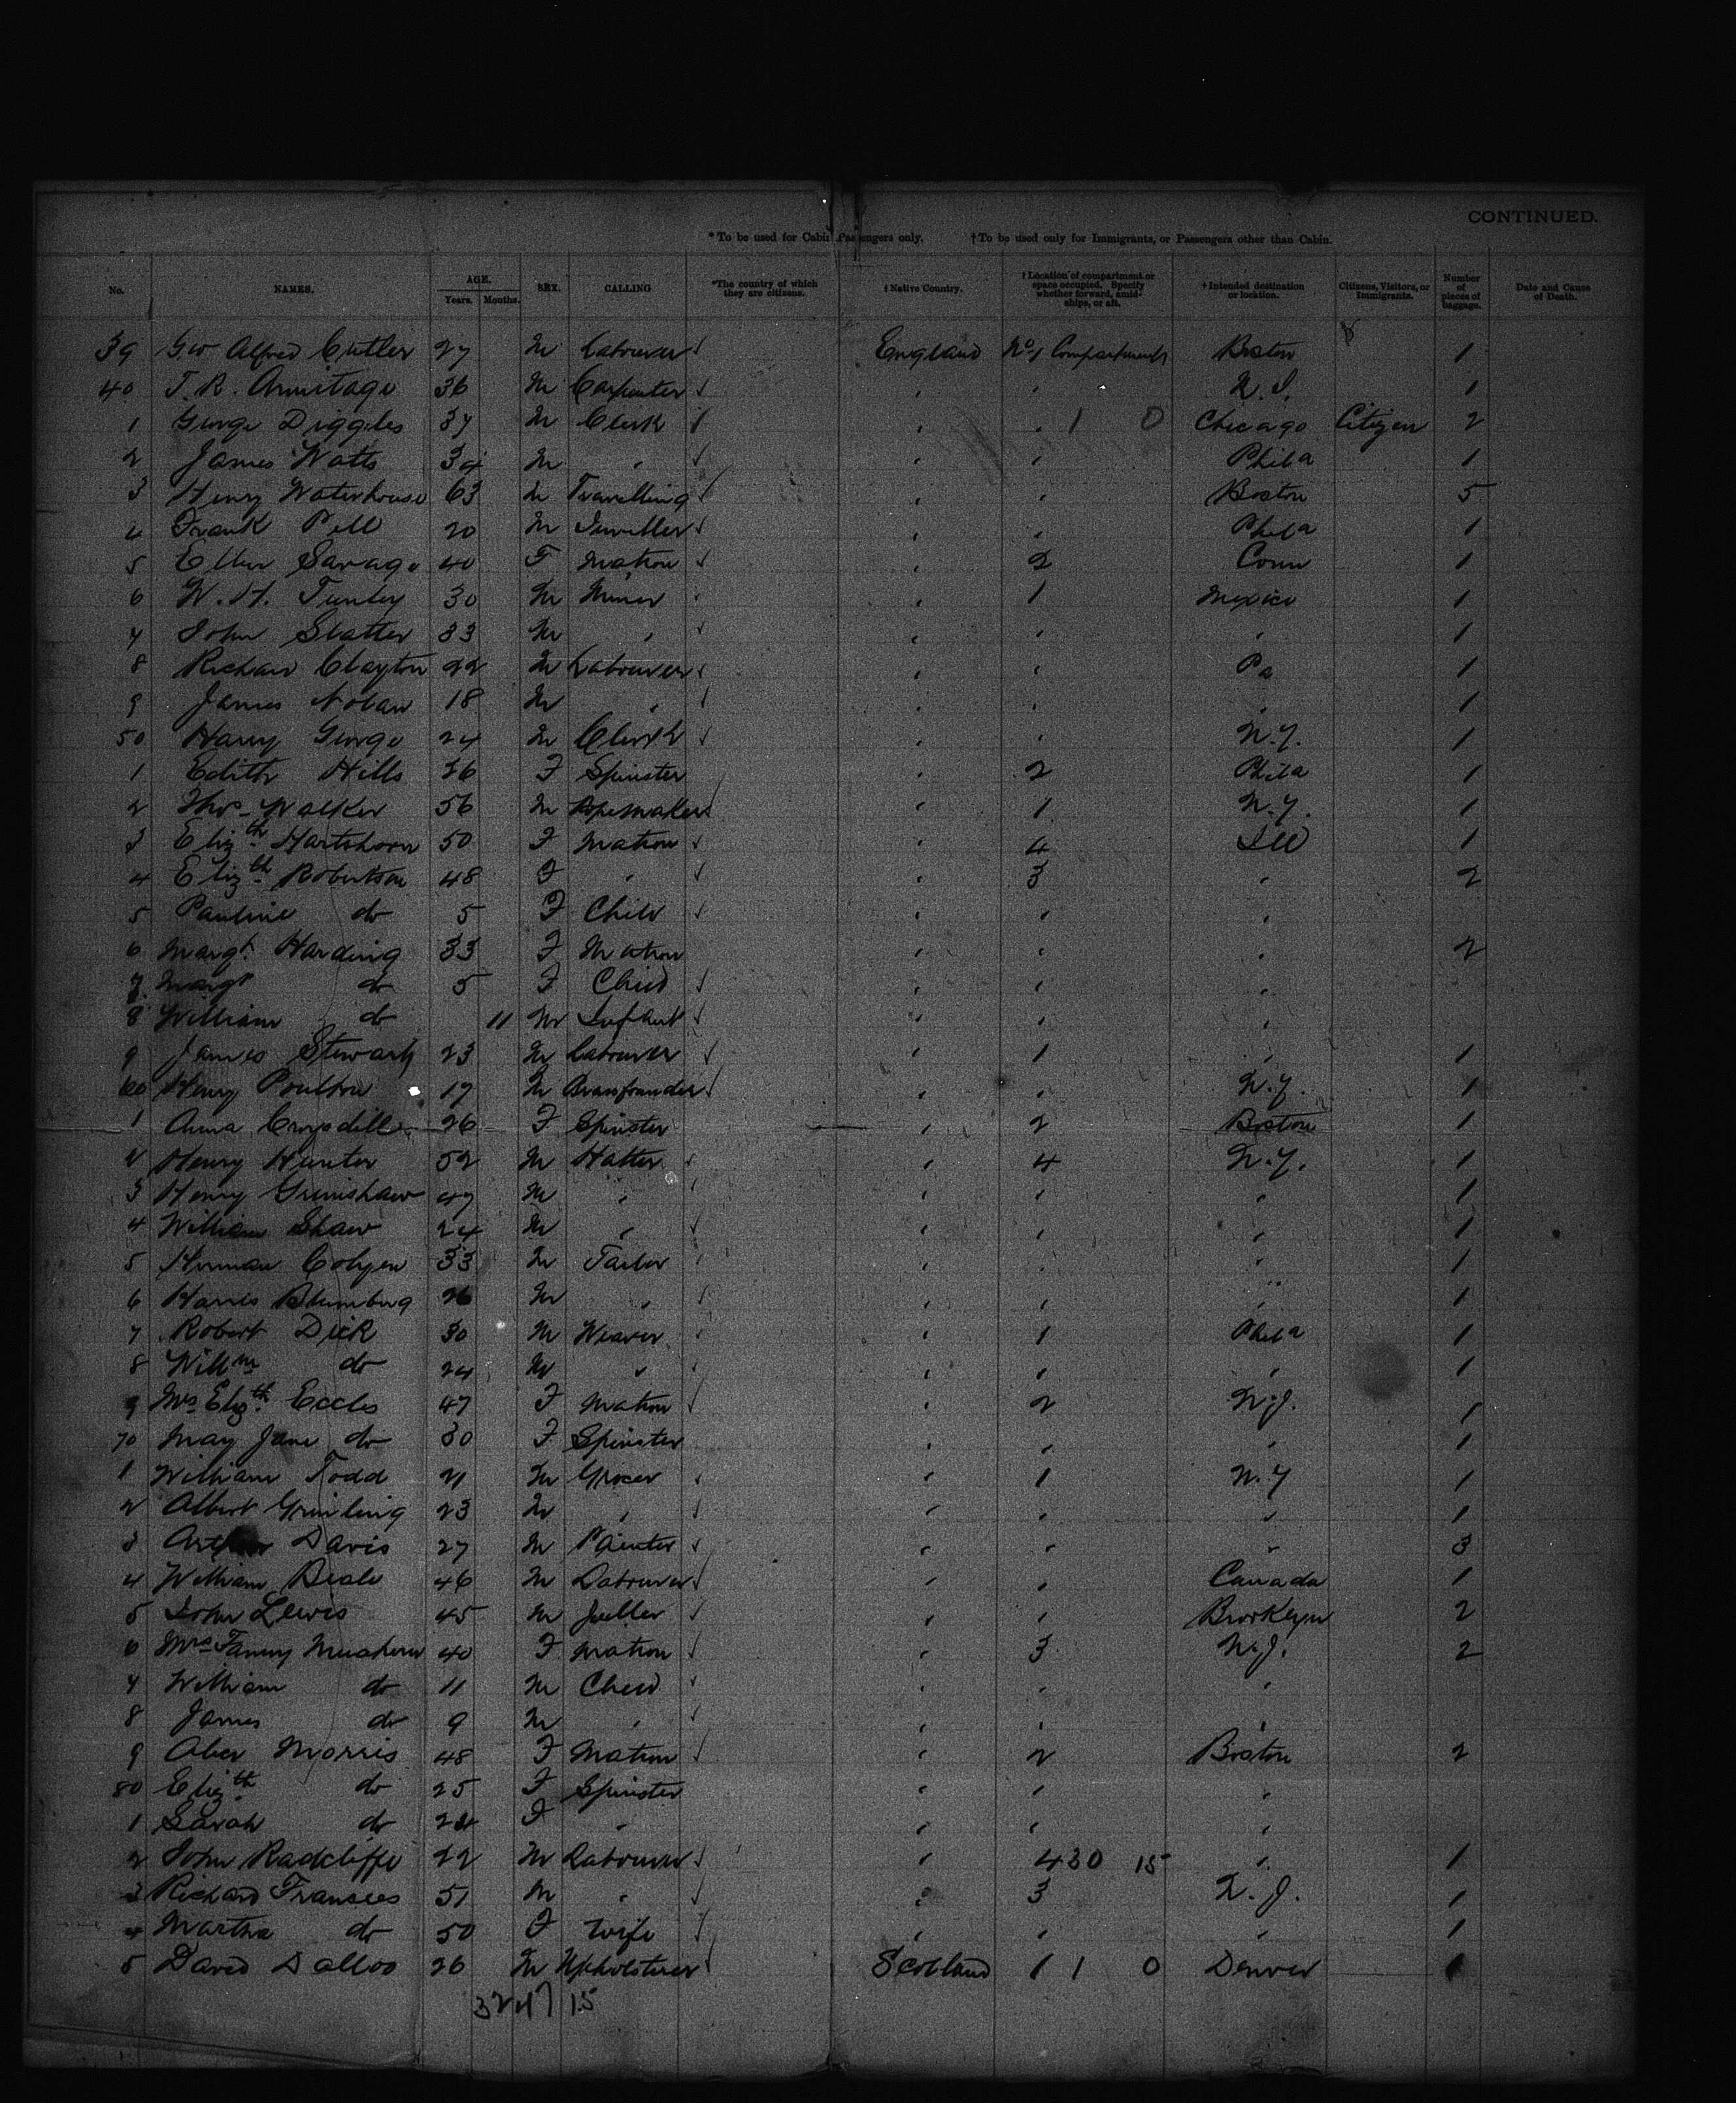 CONTINUED.
*To be used for Cabin Passengers only. †To be used only for Immigrants, or Passengers other than Cabin.
No. NAMES. AGE. Years. Months. SEX. CALLING *The country of which they are citizens. †Native Country. †Location of compartment or space occupied. Specify whether forward, amidships, or aft. †Intended destination or location. Citizens, Visitors, or Immigrants. Number of pieces of baggage. Date and Cause of Death.
39 Alfred Cutler 27 M Labourer England No 1 Compartment Boston 1
40 T. R. Armitage 36 M Carpenter " " 1
1 George Diggles 37 M Clerk " " 1 0 Chicago Citizen 2
2 James Watts 34 M " " " Phila 1
3 Henry Waterhouse 63 M Travelling " " Boston 5
4 Frank Pell 20 M Jeweller " " Phila 1
5 Ellen Savage 40 F Matron " 2 Conn 1
6 W. H. 30 M Miner " 1 Mexico 1
7 John Slatter 33 M " " " " 1
8 Richard Clayton 22 M Labourer " " Pa 1
9 James Nolan 18 M " " " " 1
50 Harry George 24 M Clerk " " N.Y. 1
1 Edith Hills 26 F Spinster " 2 Phila 1
2 Thos Walker 56 M Ropemaker " 1 N.Y. 1
3 Elizth Hartshorn 50 F Matron " 4 Ill 1
4 Elizth Robertson 48 F " " 3 " 2
5 Pauline do 5 F Child " " "
6 Margt Harding 33 F Matron " " " 2
7 Margt do 5 F Child " " "
8 William do 11 M Infant " " "
9 James Stewart 23 M Labourer " 1 " 1
60 Henry Poulton 17 M Brassfounder " " N.Y. 1
1 Anna Croysdill 26 F Spinster " 2 Boston 1
2 Henry Hunter 52 M Hatter " 4 N.Y. 1
3 Henry Grimshaw 47 M " " " " 1
4 William Shaw 24 M " " " " 1
5 Herman 33 M Tailor " " " 1
6 Harris Blumberg 26 M " " " " 1
7 Robert Dick 30 M Weaver " 1 Phila 1
8 Willm do 24 M " " " " 1
9 Mrs Elizth Eccles 47 F Matron " 2 N.J. 1
70 May Jane do 30 F Spinster " " " 1
1 William Todd 21 M Grocer " 1 N.Y 1
2 Albert Grinling 23 M " " " " 1
3 Arthur Davis 27 M Painter " " " 3
4 William Beale 46 M Labourer " " Canada 1
5 John Lewis 45 M " " Brooklyn 2
6 Mrs Fanny 40 F Matron " 3 N.J. 2
7 William do 11 M Child " " "
8 James do 9 M " " " "
9 Morris 48 F Matron " 2 Boston 2
80 Elizth do 25 F Spinster " " "
1 Sarah do 24 F " " " "
2 John Radcliffe 22 M Labourer " 430 15 " 1
3 Richard 51 M " " 3 N.J. 1
4 Martha do 50 F Wife " " " 1
5 David 26 M Upholsterer Scotland 1 1 0 Denver 1